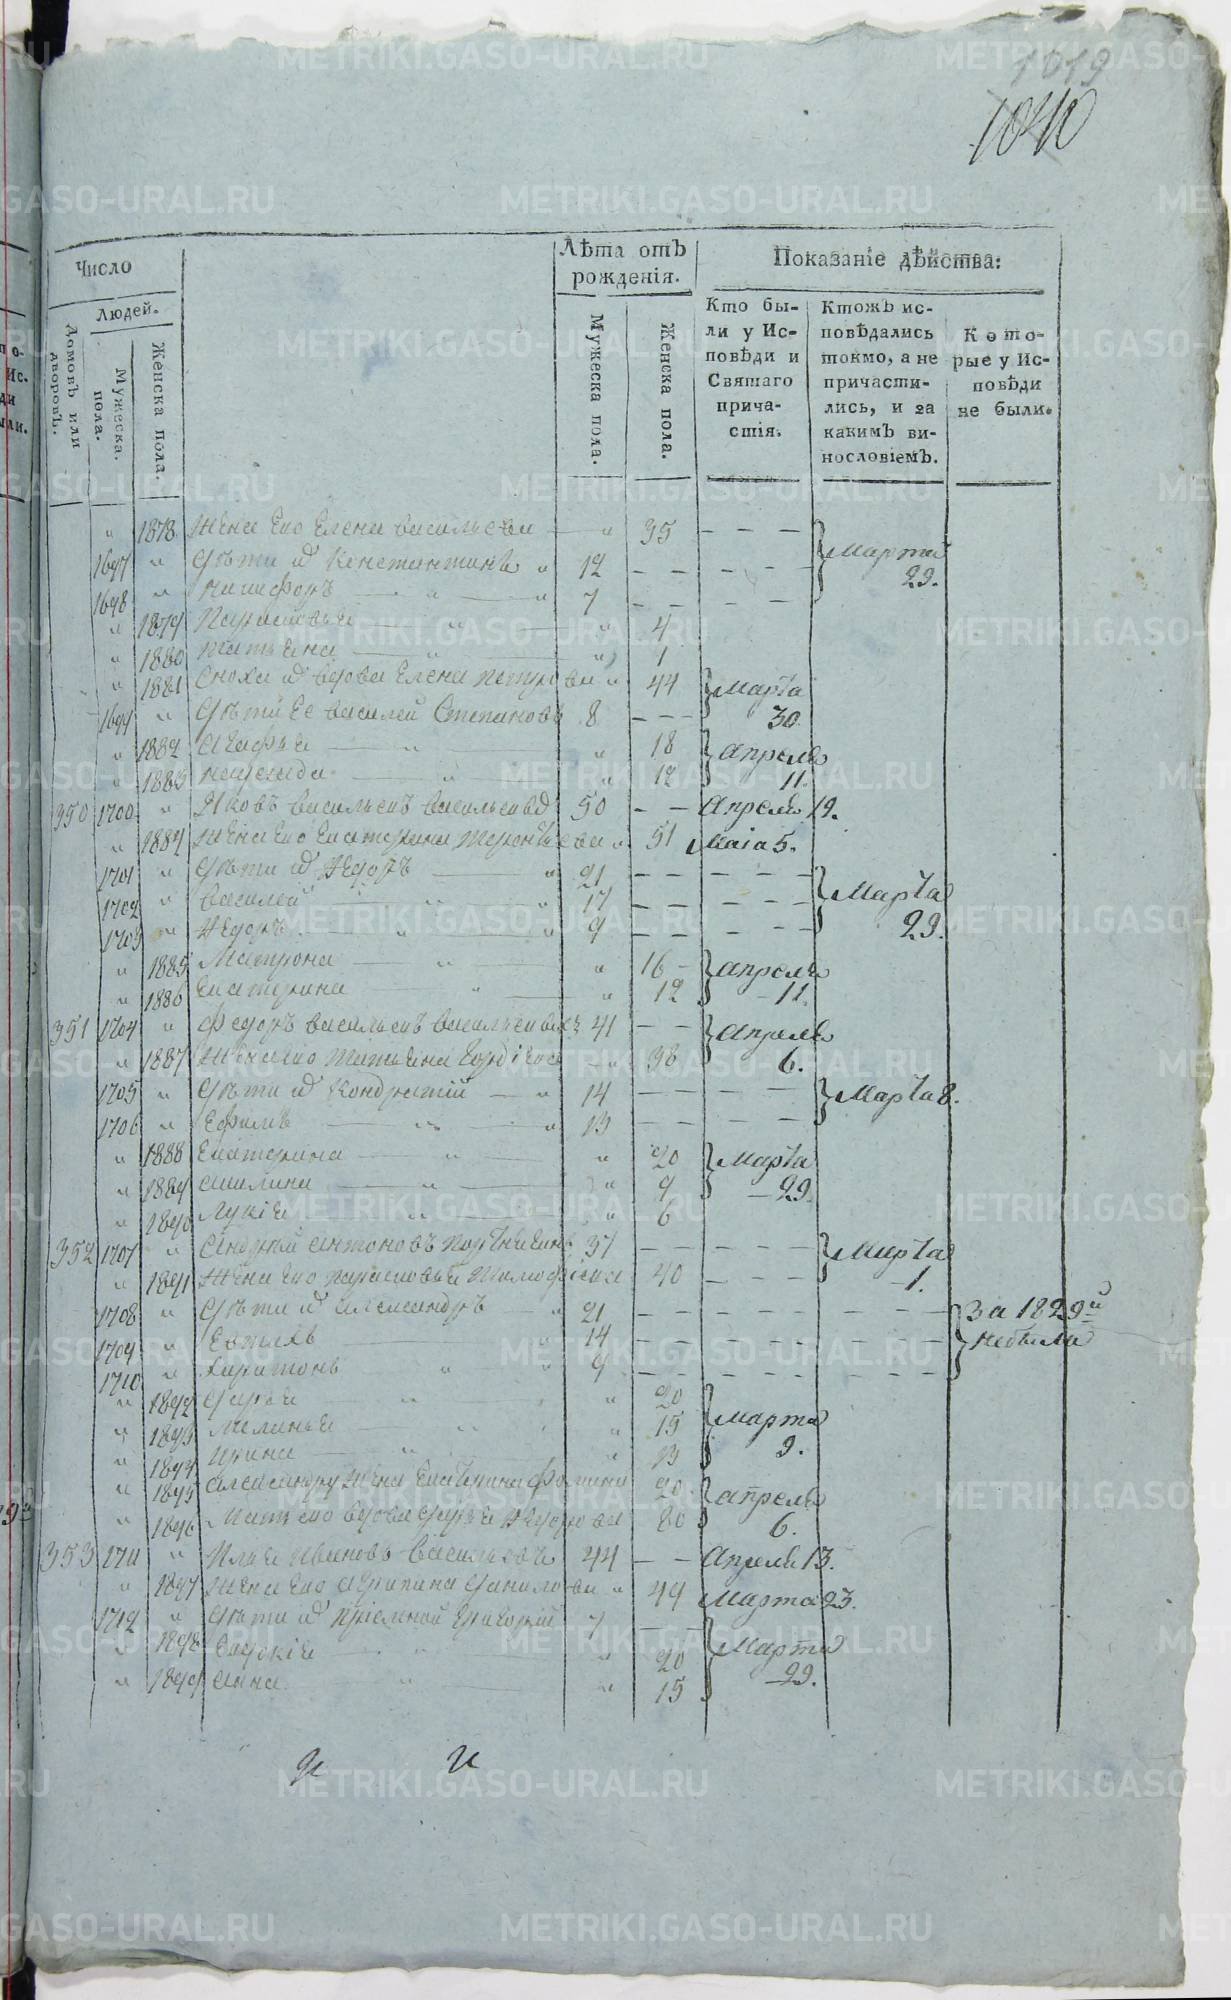 1019
1040
Число
Людей.
Домовъ или дворовъ.
Мужеска. пола.
Женска пола.
Лѣта отъ рожденія.
Мужеска пола.
Женска пола.
Показаніе дѣйства:
Кто были у Исповѣди и Святаго причастія.
Ктожъ исповѣдались токмо, а не причастились, и за какимъ винословіемъ.
Которые у Исповѣди не были.
" 1878 Жена Его Елена Васильева " 35 Марта 29.
1697 " Дѣти ихъ Константинъ " 12
1698 " Никифоръ " 7
" 1879 Парасковья " 4
" 1880 Татьяна " 1
" 1881 Сноха их вдова Елена Петрова " 44 Марта 30.
1699 " Дѣти Ее Василей Степановъ 8
" 1882 Агафья " 18 Апреля 11.
" 1883 " 12
350 1700 " Яковъ Васильевъ Васильевых 50 Апреля 12.
" 1884 Жена Его Екатерина " 51 Маіа 5.
1701 " Дѣти их Федоръ " 21 Марта 29.
1702 " Василей " 17
1703 " Федоръ " 9
" 1885 Матрона " 16 Апреля 11.
" 1886 Екатерина " 12
351 1704 " Федоръ Васильевъ Васильевых 41 Апреля 6.
" 1887 Жена Его Татьяна " 38
1705 " Дѣти их Кондратій " 14 Марта 8.
1706 " Ефимъ " 13
" 1888 Екатерина " 20 Марта 29.
" 1889 Акилина " 9
" 1890 Лукія " 6
352 1707 " Андрей Антоновъ 37 Марта 1.
" 1891 Жена Его Парасковья Тимофеева 40
1708 " Дѣти их Александръ " 21 За 1829й небыли
1709 " " 14
1710 " Харитонъ " 9
" 1892 Дарья " 20 Марта 9.
" 1893 Меланья " 15
" 1894 Ирина " 13
" 1895 Александру жена Екатерина Фомина 20 Апреля 6.
" 1896 Мать его вдова Дарья Федорова 80
353 1711 " Илья Ивановъ Васильевъ 44 Апреля 13.
" 1897 Жена Его Агрипина Данилова " 49 Марта 23.
1712 " Дѣти их пріемной Григорій 7
" 1898 Евдокія " 20 Марта 29.
" 1899 Анна " 15